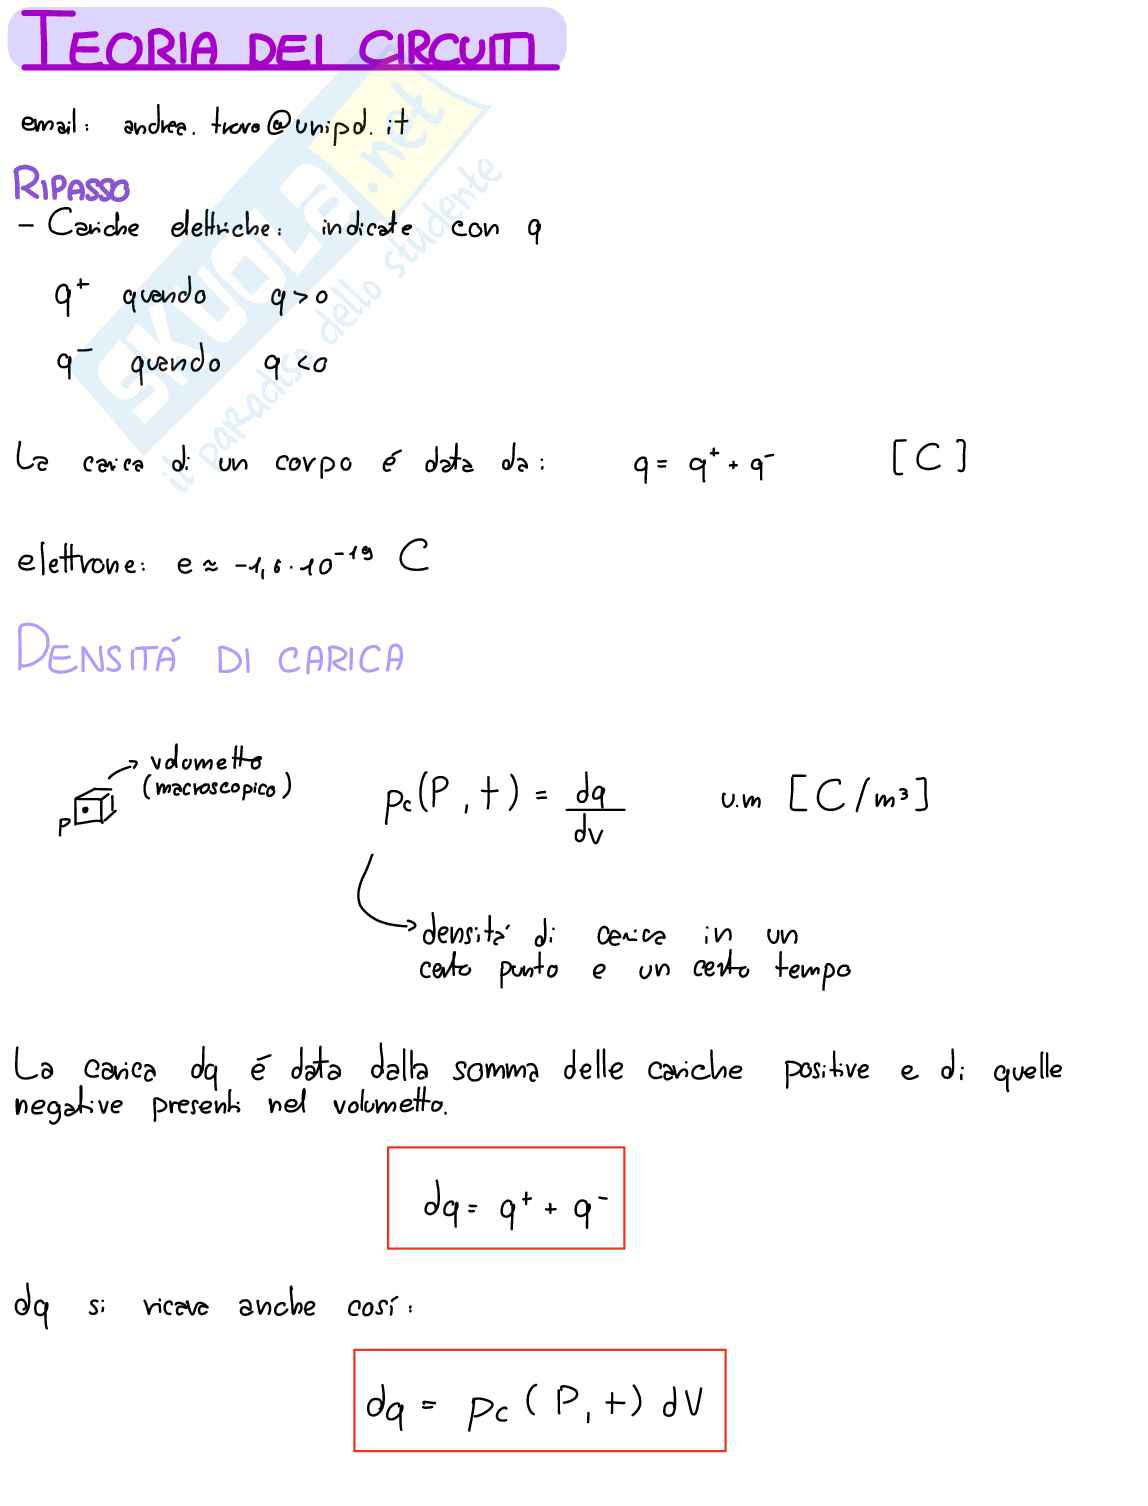 TEORIA DEI CIRCUITI
email: andrea.trovo@unipd.it
RIPASSO
- Cariche elettriche: indicate con q
q⁺ quando q>0
q⁻ quando q<0
La carica di un corpo é data da: q = q⁺ + q⁻ [C]
elettrone: e ≈ -1,6·10⁻¹⁹ C
DENSITÁ DI CARICA
volumetto
(macroscopico)
P
ρc(P,t) = dq/dV u.m [C/m³]
densitá di carica in un
certo punto e un certo tempo
La carica dq é data dalla somma delle cariche positive e di quelle
negative presenti nel volumetto.
dq = q⁺ + q⁻
dq si ricava anche cosí:
dq = ρc(P,t) dV
SKUOLA.net
il paradiso dello studente